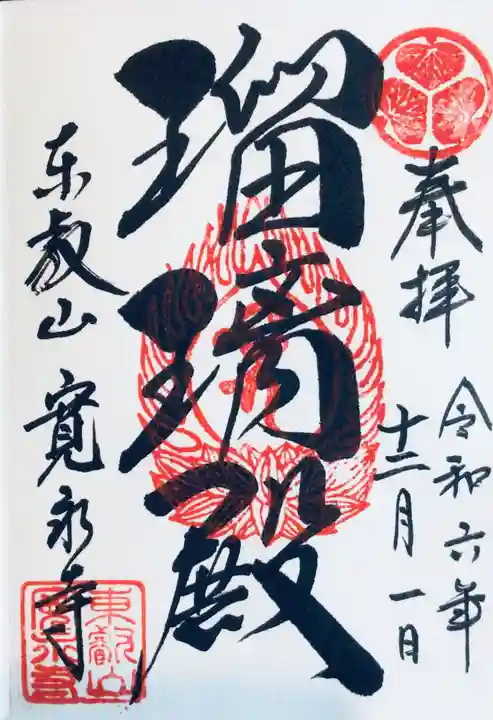 奉拝
令和六年
十二月一日
瑠璃殿
東叡山 寛永寺
東叡山
寛永寺